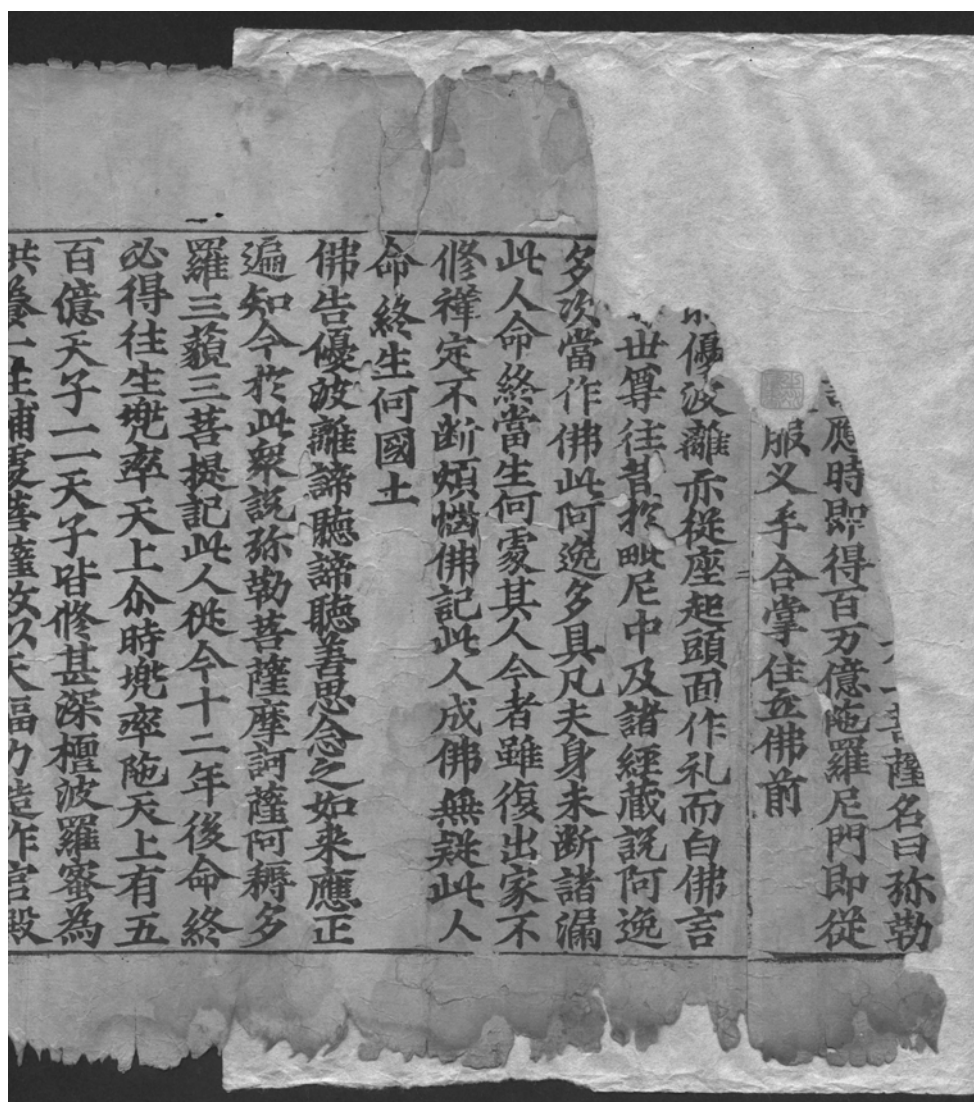 菩薩名曰弥勒
應時即得百万億陁羅尼門即從
服叉手合掌住立佛前
優波離亦從座起頭面作礼而白佛言
世尊往昔於毗尼中及諸經藏説阿逸
多次當作佛此阿逸多具凡夫身未断諸漏
此人命終當生何處其人今者雖復出家不
修禪定不断煩惱佛記此人成佛無疑此人
命終生何國土
佛告優波離諦聽諦聽善思念之如来應正
遍知今於此衆説弥勒菩薩摩訶薩阿耨多
羅三藐三菩提記此人從今十二年後命終
必得往生兠率天上尒時兠率陁天上有五
百億天子一一天子皆修甚深檀波羅蜜為
供養一生補處菩薩故以天福力造作宫殿